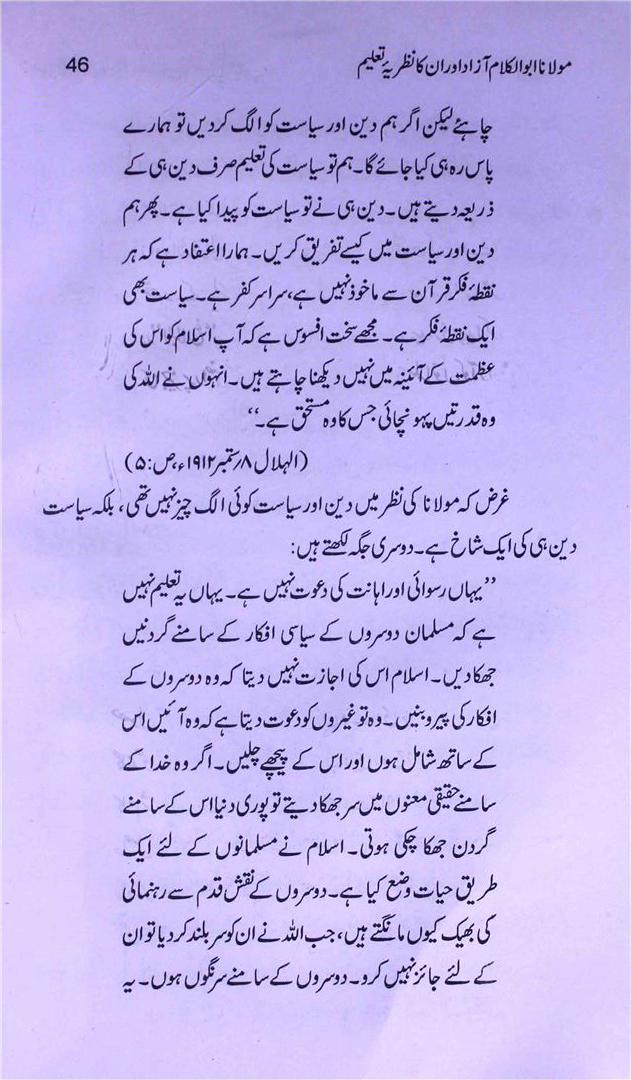 مولانا ابوالکلام آزاد اور ان کا نظریۂ تعلیم 46
چاہئے لیکن اگر ہم دین اور سیاست کو الگ کردیں تو ہمارے
پاس رہ ہی کیا جائے گا۔ ہم تو سیاست کی تعلیم صرف دین ہی کے
ذریعہ دیتے ہیں۔ دین ہی نے تو سیاست کو پیدا کیا ہے۔ پھر ہم
دین اور سیاست میں کیسے تفریق کریں۔ ہمارا اعتفاد ہے کہ ہر
نقطۂ فکر قرآن سے ماخوذ نہیں ہے، سراسر کفر ہے۔ سیاست بھی
ایک نقطۂ فکر ہے۔ مجھے سخت افسوس ہے کہ آپ اسلام کو اس کی
عظمت کے آئینہ میں نہیں دیکھنا چاہتے ہیں۔ انہوں نے اللہ کی
وہ قدرتیں پہونچائی جس کا وہ مستحق ہے۔‘‘
(الہلال ۸؍ ستمبر ۱۹۱۲ء، ص: ۵)
غرض کہ مولانا کی نظر میں دین اور سیاست کوئی الگ چیز نہیں تھی، بلکہ سیاست
دین ہی کی ایک شاخ ہے۔ دوسری جگہ لکھتے ہیں:
’’یہاں رسوائی اور اہانت کی دعوت نہیں ہے۔ یہاں یہ تعلیم نہیں
ہے کہ مسلمان دوسروں کے سیاسی افکار کے سامنے گردنیں
جھکادیں۔ اسلام اس کی اجازت نہیں دیتا کہ وہ دوسروں کے
افکار کی پیرو بنیں۔ وہ تو غیروں کو دعوت دیتا ہے کہ وہ آئیں اس
کے ساتھ شامل ہوں اور اس کے پیچھے چلیں۔ اگر وہ خدا کے
سامنے حقیقی معنوں میں سر جھکا دیتے تو پوری دنیا اس کے سامنے
گردن جھکا چکی ہوتی۔ اسلام نے مسلمانوں کے لئے ایک
طریق حیات وضع کیا ہے۔ دوسروں کے نقش قدم سے رہنمائی
کی بھیک کیوں مانگتے ہیں، جب اللہ نے ان کو سر بلند کر دیا تو ان
کے لئے جائز نہیں کرو۔ دوسروں کے سامنے سرنگوں ہوں۔ یہ